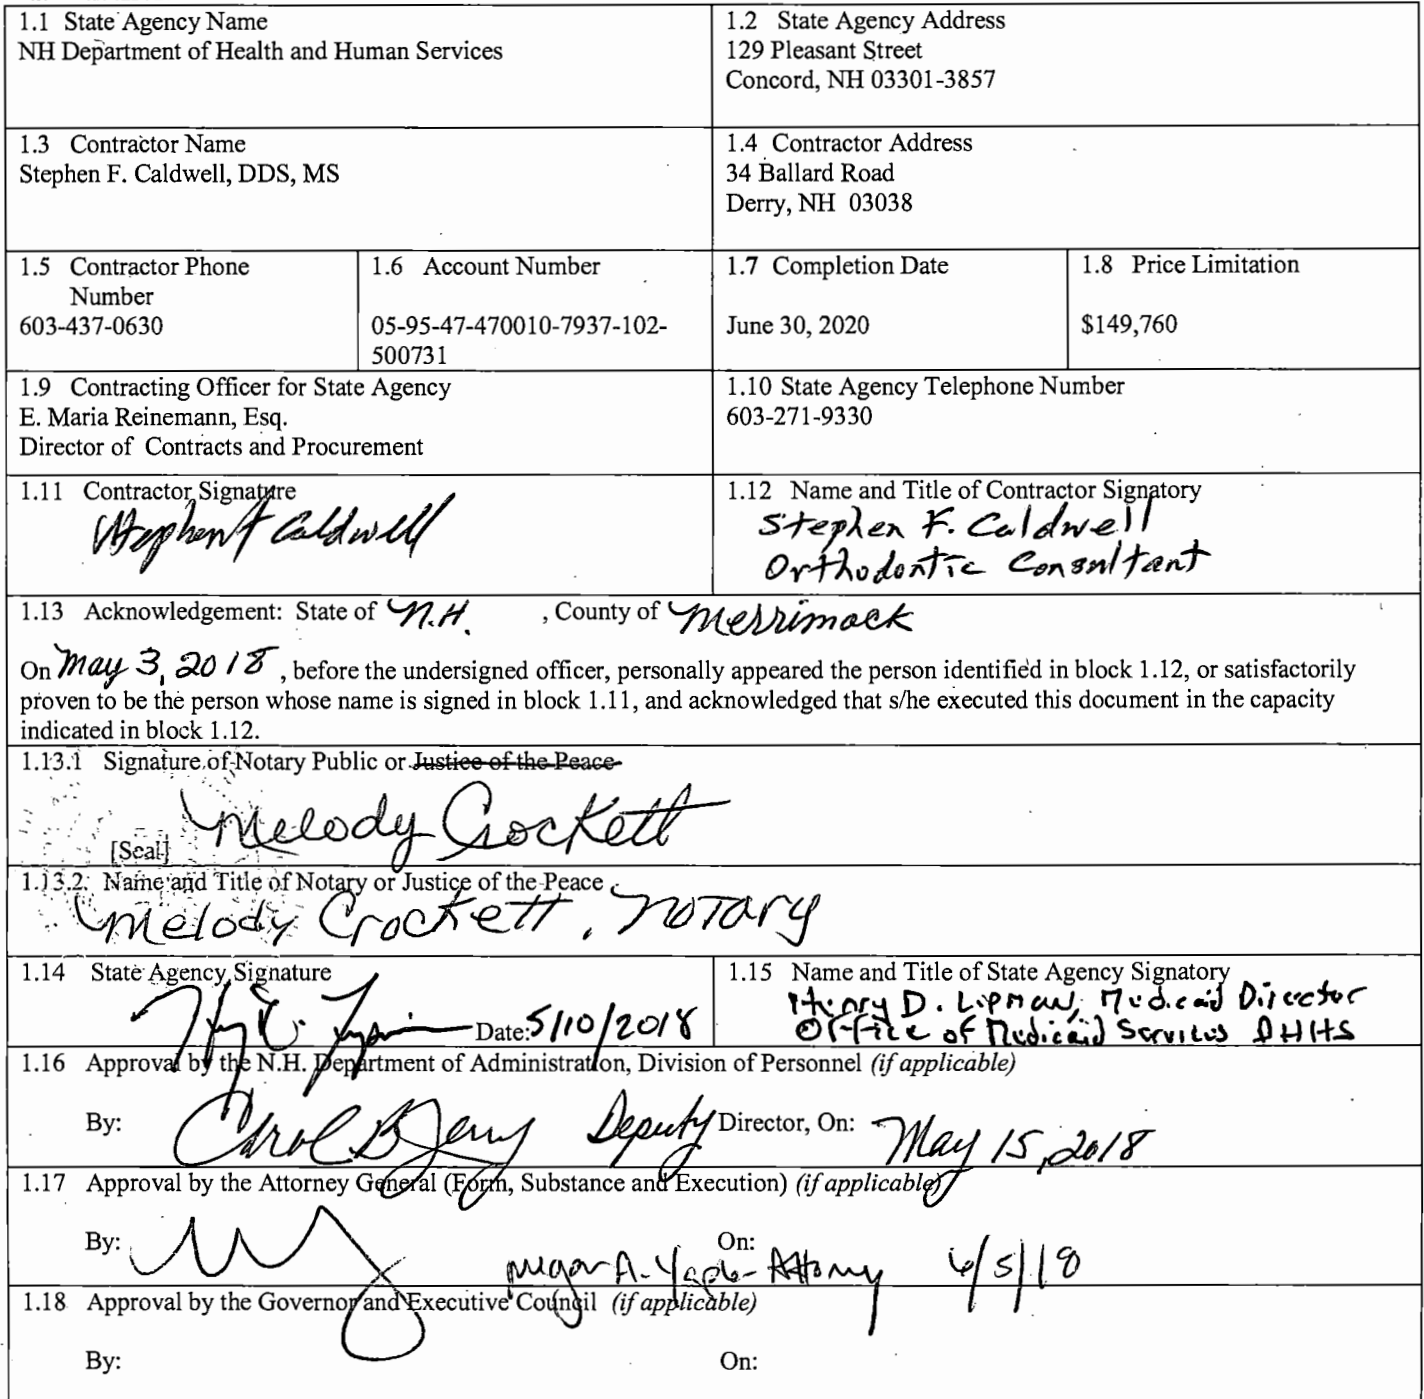 1.1 State Agency Name
NH Department of Health and Human Services
1.2 State Agency Address
129 Pleasant Street
Concord, NH 03301-3857
1.3 Contractor Name
Stephen F. Caldwell, DDS, MS
1.4 Contractor Address
34 Ballard Road
Derry, NH 03038
1.5 Contractor Phone
Number
603-437-0630
1.6 Account Number
05-95-47-470010-7937-102-
500731
1.7 Completion Date
June 30, 2020
1.8 Price Limitation
$149,760
1.9 Contracting Officer for State Agency
E. Maria Reinemann, Esq.
Director of Contracts and Procurement
1.10 State Agency Telephone Number
603-271-9330
1.11 Contractor Signature
Stephen F Caldwell
1.12 Name and Title of Contractor Signatory
Stephen F. Caldwell
Orthodontic Consultant
1.13 Acknowledgement: State of N.H. , County of Merrimack
On May 3, 2018 , before the undersigned officer, personally appeared the person identified in block 1.12, or satisfactorily
proven to be the person whose name is signed in block 1.11, and acknowledged that s/he executed this document in the capacity
indicated in block 1.12.
1.13.1 Signature of Notary Public or Justice of the Peace
Melody Crockett
[Seal]
1.13.2. Name and Title of Notary or Justice of the Peace
Melody Crockett, Notary
1.14 State Agency Signature
Date: 5/10/2018
1.15 Name and Title of State Agency Signatory
Henry D. Lipman, Medicaid Director
Office of Medicaid Services DHHS
1.16 Approval by the N.H. Department of Administration, Division of Personnel (if applicable)
By: Carol B Deputy Director, On: May 15, 2018
1.17 Approval by the Attorney General (Form, Substance and Execution) (if applicable)
By: Megan A. - Attorney On: 6/5/18
1.18 Approval by the Governor and Executive Council (if applicable)
By: On: